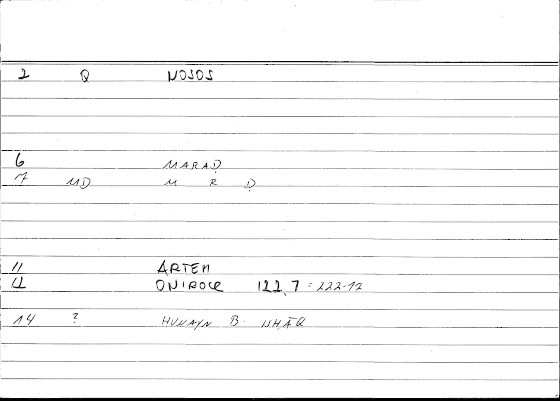 2 Q NOSOS
6 MARAḌ
7 MD M R Ḍ
11 ARTEM
12 ONIROCR 122,7 = 222.12
14 ? ḤUNAYN B. ISḤĀQ